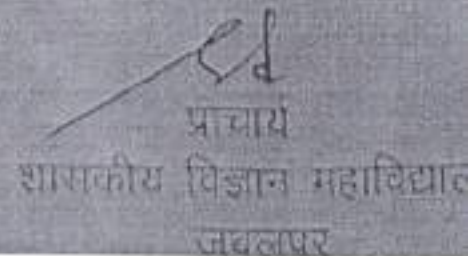 प्राचार्य
शासकीय विज्ञान महाविद्याल
जबलपुर